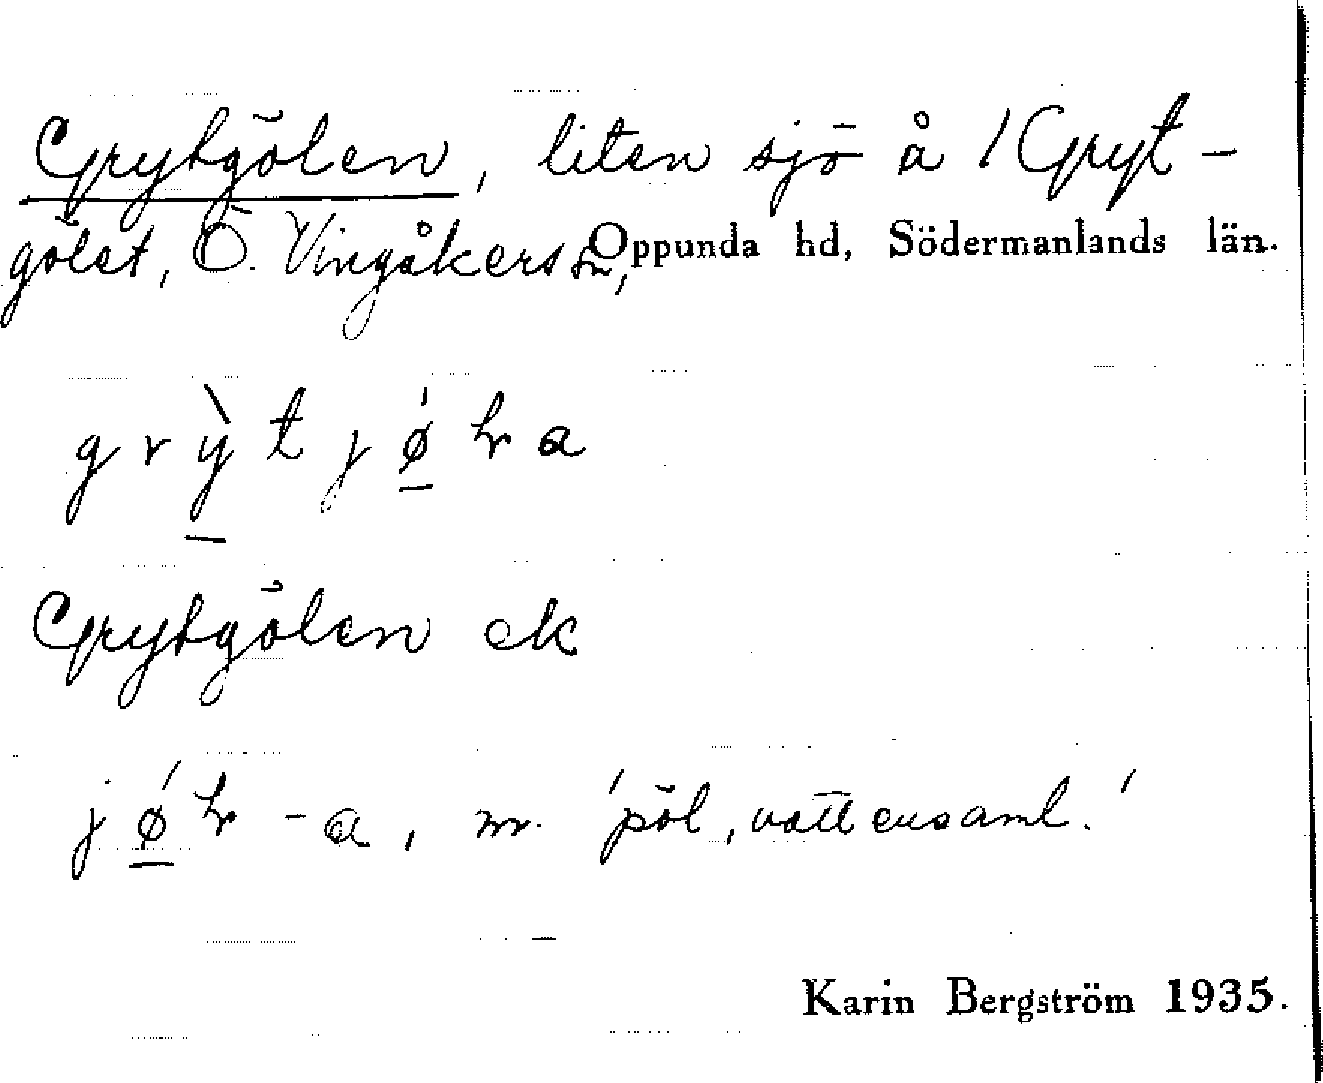 Grytgölen, liten sjö å 1 Gryt-
gölet, Ö. Vingåkers sn, Oppunda hd, Södermanlands län.
grỳtjǿła
Grytgölen ek
jǿł -a, m. 'pöl, vattensaml.'
Karin Bergström 1935.